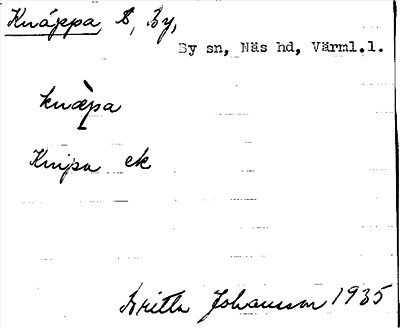 Knäppa, t, By,
By sn, Näs hd, Värml.l.
knæ̀pa
Knipa ek
Britta Johansson 1935